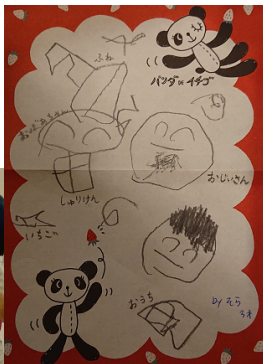 ふね
パンダ in イチゴ
おばあちゃん
おじいさん
しゅりけん
いちご
おうち
by そら